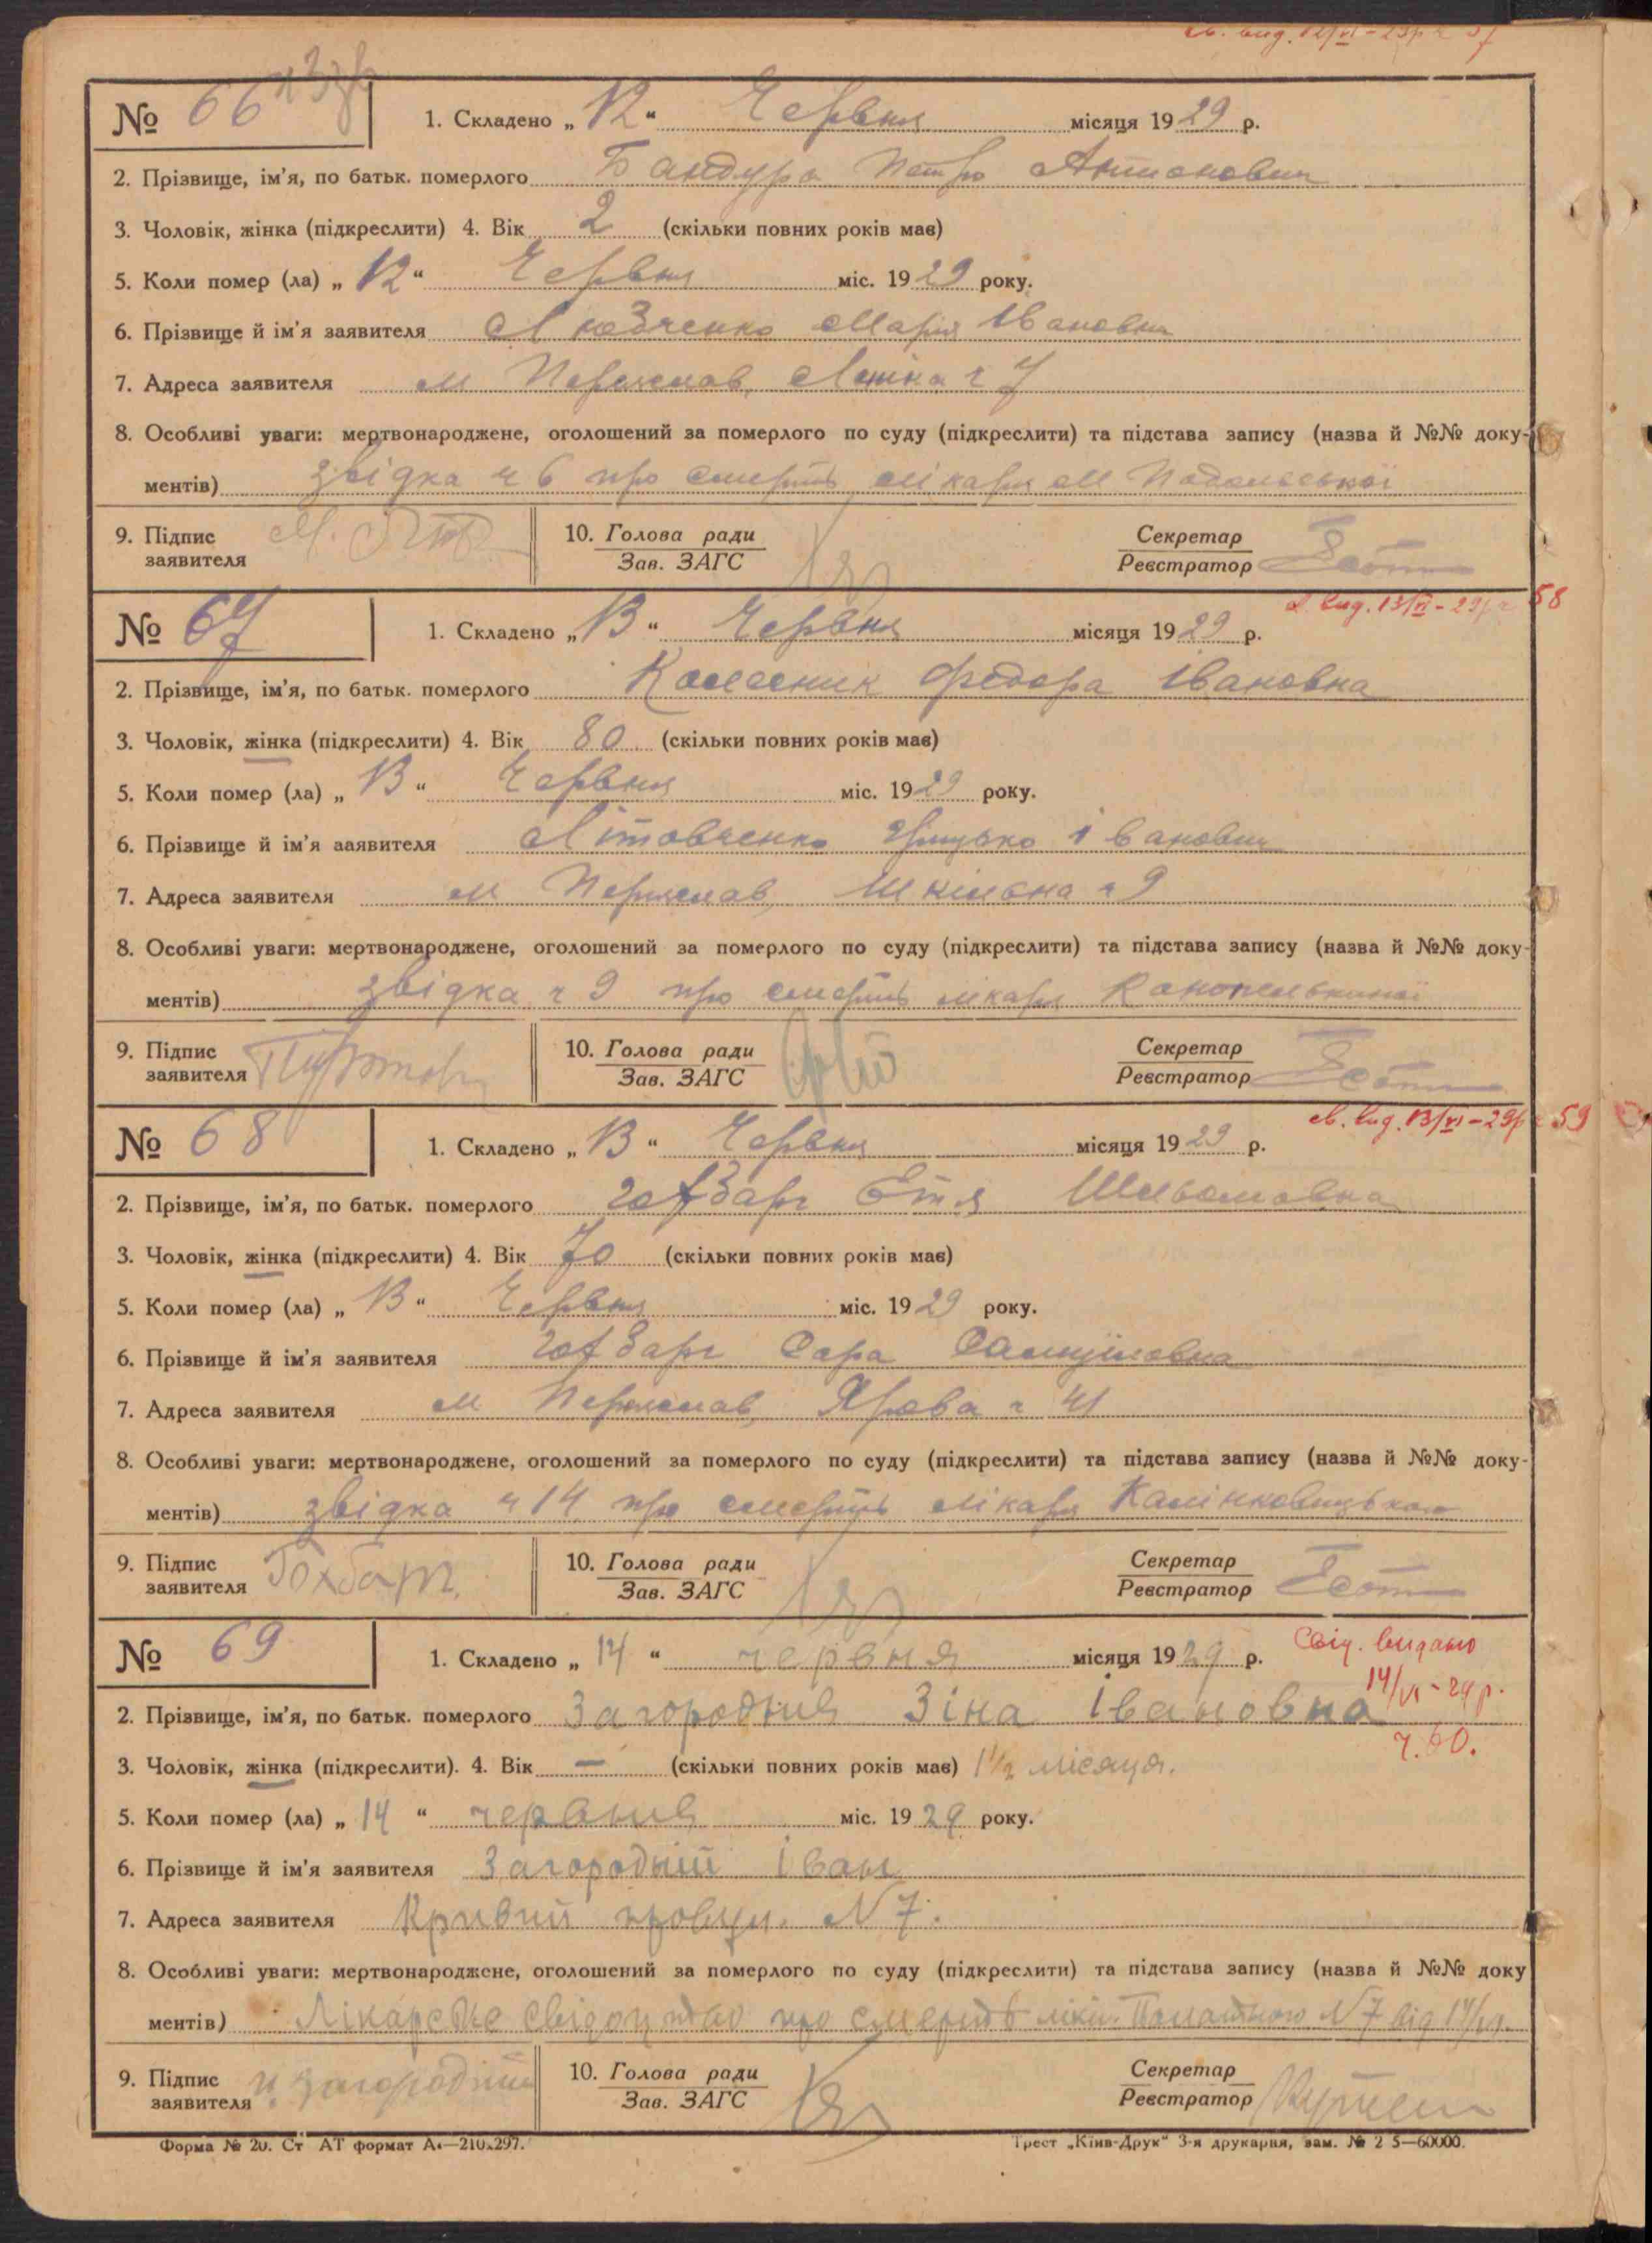 св. вид. 12/VI - 29р ч 57
№ 66
1. Складено „ 12 “ Червня місяця 19 29 р.
2. Прізвище, ім'я, по батьк. померлого Бандура Петро Антонович
3. Чоловік, жінка (підкреслити) 4. Вік 2 (скільки повних років має)
5. Коли помер (ла) „ 12 “ Червня міс. 19 29 року.
6. Прізвище й ім'я заявителя Марія Івановна
7. Адреса заявителя м Переяслав, ч 7
8. Особливі уваги: мертвонароджене, оголошений за померлого по суду (підкреслити) та підстава запису (назва й №№ доку-
ментів) звідка ч 6 про смерть лікаря М Подольської
9. Підпис
заявителя
10. Голова ради
Зав. ЗАГС
Секретар
Реєстратор
св. вид. 13/VI - 29р ч 58
№ 67
1. Складено „ 13 “ Червня місяця 19 29 р.
2. Прізвище, ім'я, по батьк. померлого Колесник Федора Івановна
3. Чоловік, жінка (підкреслити) 4. Вік 80 (скільки повних років має)
5. Коли помер (ла) „ 13 “ Червня міс. 19 29 року.
6. Прізвище й ім'я заявителя Літовченко Грицько Іванович
7. Адреса заявителя м Переяслав, Шкільна ч 9
8. Особливі уваги: мертвонароджене, оголошений за померлого по суду (підкреслити) та підстава запису (назва й №№ доку-
ментів) звідка ч 9 про смерть лікаря
9. Підпис
заявителя
10. Голова ради
Зав. ЗАГС
Секретар
Реєстратор
св. вид. 13/VI - 29р ч 59
№ 68
1. Складено „ 13 “ Червня місяця 19 29 р.
2. Прізвище, ім'я, по батьк. померлого Гохбарг Етя Шльомовна
3. Чоловік, жінка (підкреслити) 4. Вік 70 (скільки повних років має)
5. Коли помер (ла) „ 13 “ Червня міс. 19 29 року.
6. Прізвище й ім'я заявителя Гохбарг Сара Самуіловна
7. Адреса заявителя м Переяслав, Ярова ч 41
8. Особливі уваги: мертвонароджене, оголошений за померлого по суду (підкреслити) та підстава запису (назва й №№ доку-
ментів) звідка ч 14 про смерть лікаря
9. Підпис
заявителя
10. Голова ради
Зав. ЗАГС
Секретар
Реєстратор
№ 69
1. Складено „ 14 “ червня місяця 19 29 р.
Свід. видано
14/VI - 29р.
ч. 60.
2. Прізвище, ім'я, по батьк. померлого Загородня Зіна Івановна
3. Чоловік, жінка (підкреслити). 4. Вік — (скільки повних років має) 1 1/2 місяця.
5. Коли помер (ла) „ 14 “ червня міс. 19 29 року.
6. Прізвище й ім'я заявителя Загородній Іван
7. Адреса заявителя Кривий провул. N 7.
8. Особливі уваги: мертвонароджене, оголошений за померлого по суду (підкреслити) та підстава запису (назва й №№ доку
ментів) Лікарське свідоцтво про смерть N 7 від 14/VI.
9. Підпис
заявителя И Загородній
10. Голова ради
Зав. ЗАГС
Секретар
Реєстратор
Форма № 20. Ст АТ формат А4—210х297.
Трест „Київ-Друк“ 3-я друкарня, зам. № 2 5—60000.